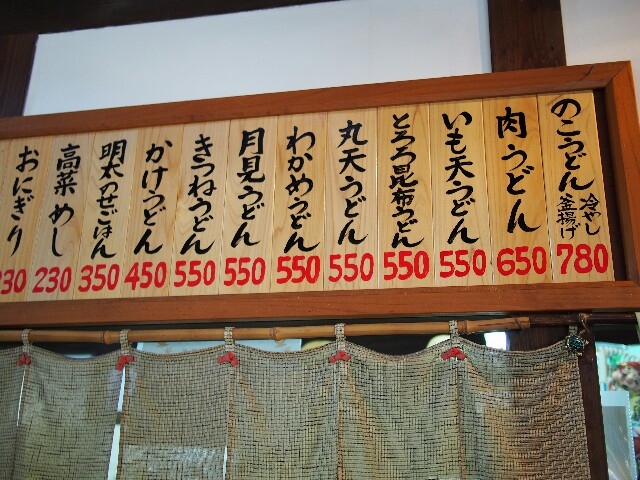 のこうどん 冷やし 釜揚げ 780
肉うどん 650
いも天うどん 550
とろろ昆布うどん 550
丸天うどん 550
わかめうどん 550
月見うどん 550
きつねうどん 550
かけうどん 450
明太のせごはん 350
高菜めし 230
おにぎり 230